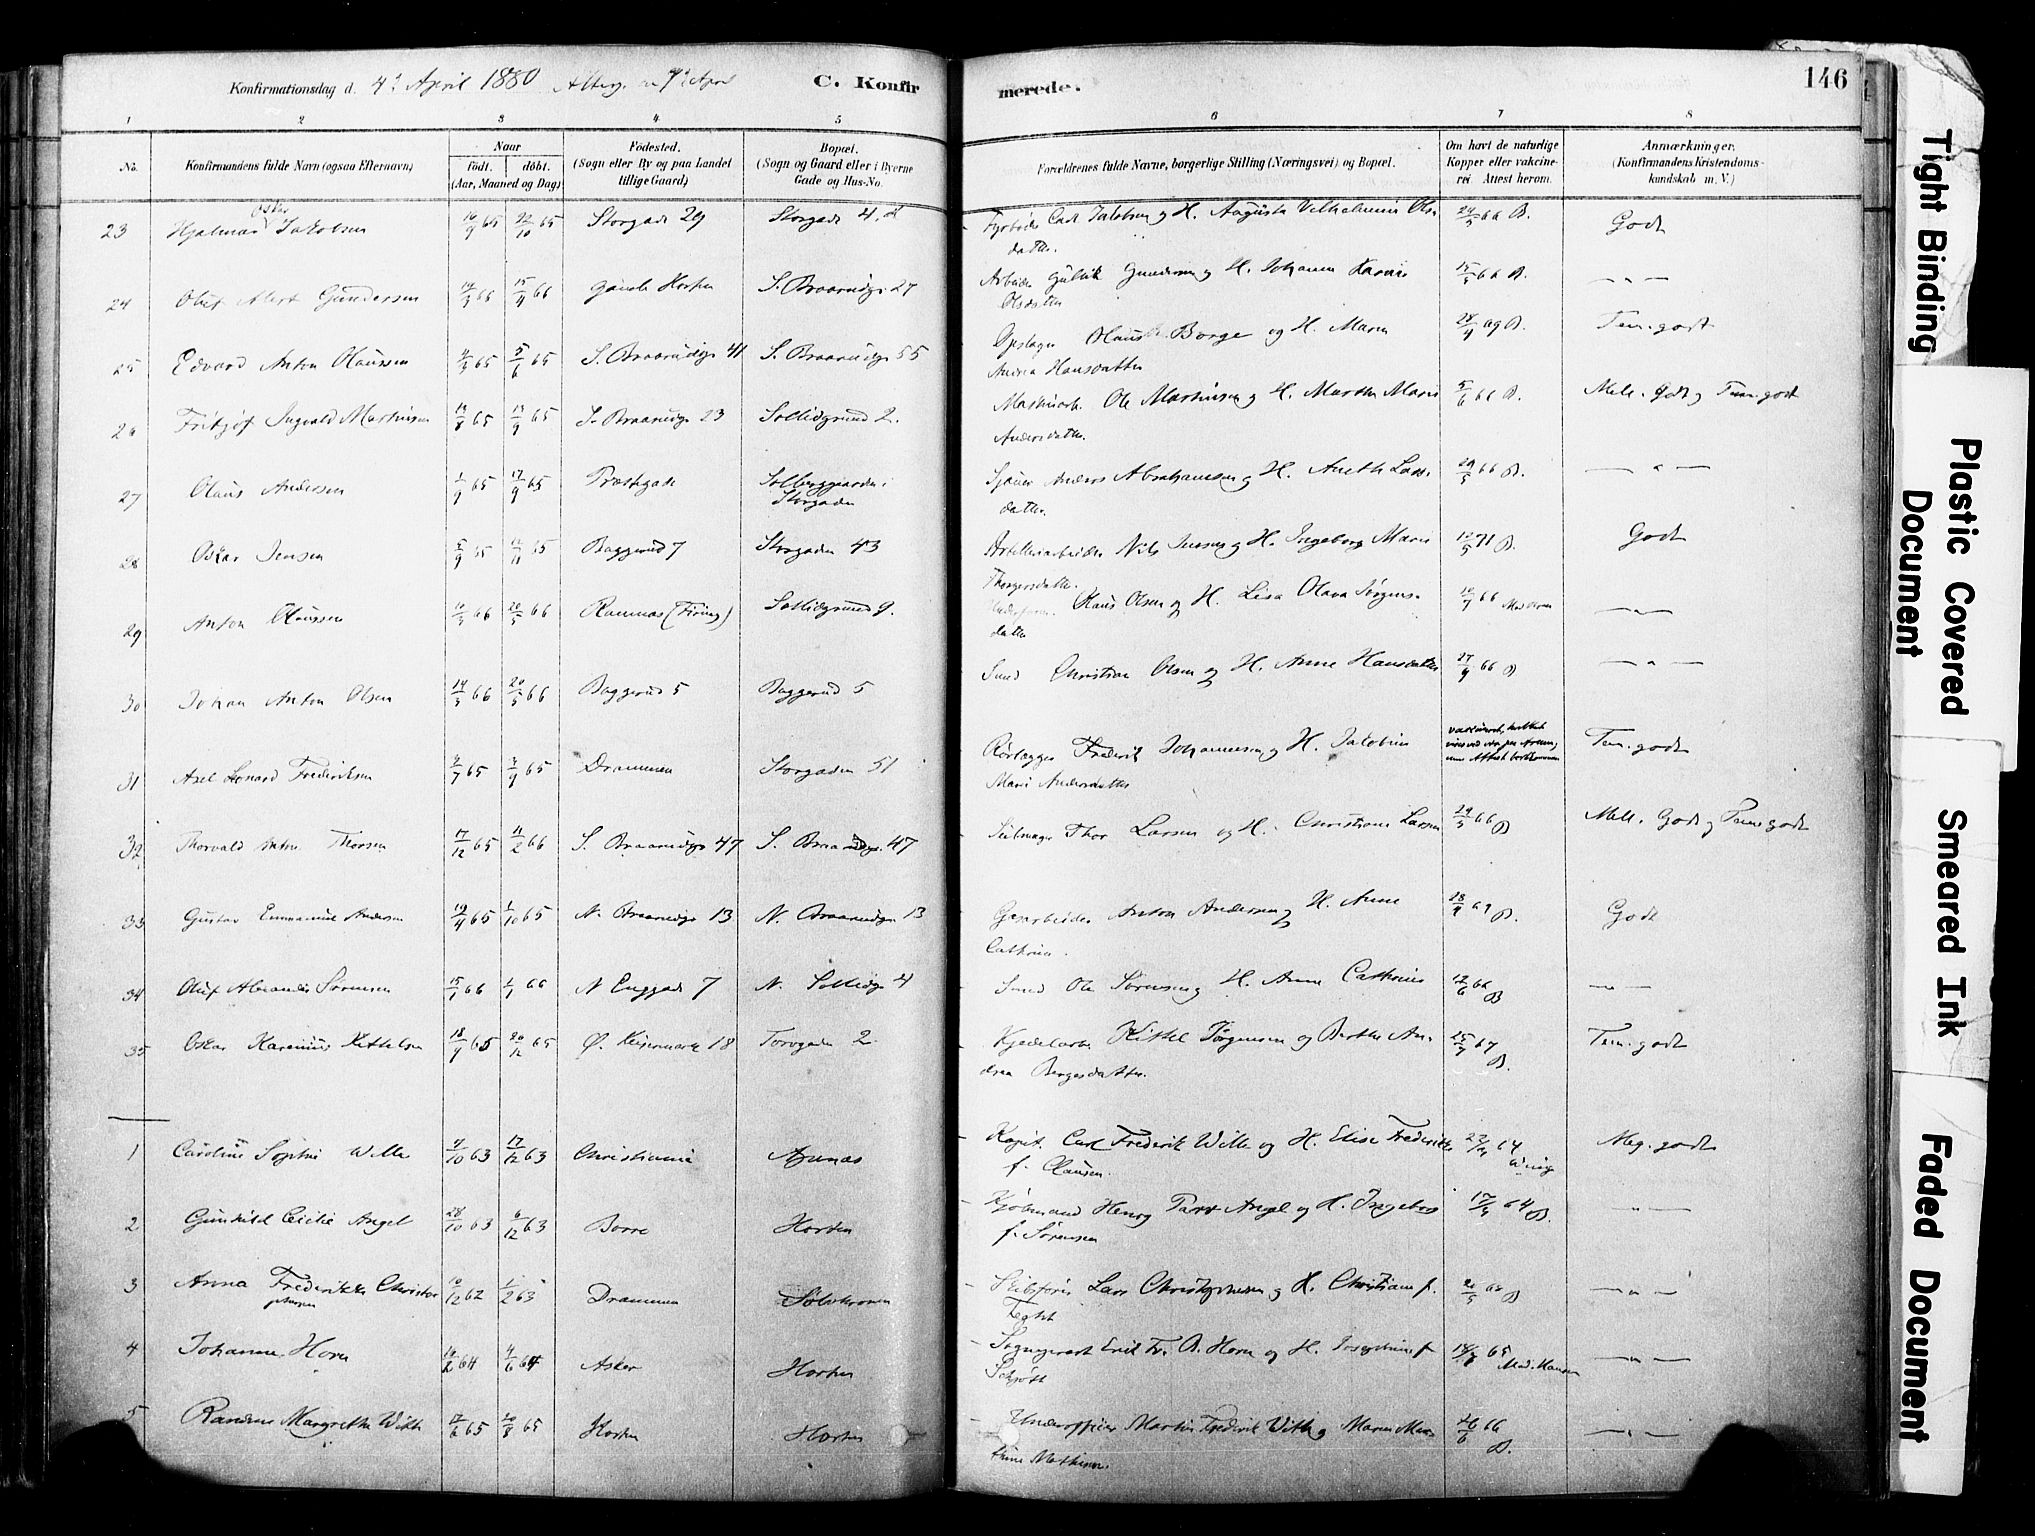 Konfirmationsdag d. 4de April 1880 C. Konfirmerede. 146
1 2 3 4 5 6 7 8
No. Konfirmandens fulde Navn (ogsaa Efternavn) Naar födt. döbt. (Aar, Maaned og Dag) Födested. (Sogn eller By og paa Landet tillige Gaard) Bopæl. (Sogn og Gaard eller i Byerne Gade og Hus-No. Forældrenes fulde Navne, borgerlige Stilling (Næringsvei) og Bopæl. Om havt de naturlige Kopper eller vakcineret. Attest herom. Anmærkninger. (Konfirmandens Kristendomskundskab m. V.)
23 Hjalmar Oskar Jakobsen 16/9 65 22/10 65 Storgade 29 Storgade 4 Fyrböder Carl Jakobsen og H. Augusta Vilhelmine Olsdatter 24/5 66 B. Godt
24 Oluf Albert Gundersen 15/4 66 Gamle Horten S. Braarudgt 27 Arbeider Gulbik Gundersen og H. Johanne Karine Olsdatter 15/5 66 B. — " —
25 Edvard Anton Olaussen 4/3 65 5/6 65 S. Braarudgt 41 S. Braarudgt 55 Olaus Borge og H. Maren Andrea Hansdatter 28/4 69 B. Tem. godt
26 Fritjof Ingvald Martinsen 65 65 S. Braarudgt 23 Sollidgrund 2. Maskinarb. Ole Martinsen og H. Marthe Marie Andersdatter. 5/6 66 B. Mell. Godt og Tem. godt
27 Olaus Andersen 1/9 65 17/9 65 Præstegade Solberggaarden i Storgaden Sjauer Anders Abrahamsen og H. Anethe Larsdatter. 29/5 66 B. — " —
28 Oskar Jensen 5/9 65 65 Baggerud 7 Storgaden 43 Artilleriarbeider Nils Jensen og H. Ingeborg Marie Thorgersdatter. 12/5 71 B. Godt
29 Anton Olaussen 66 20/5 66 Ramnæs (Firing) Sollidgrund 9. Olaus Olsen og H. Lisa Olava Jörgensdatter 66 — " —
30 Johan Anton Olsen 14/3 66 20/5 66 Baggerud 5 Baggerud 5 Smed Christian Olsen og H. Anne Hansdatter 27/9 66 B — " —
31 Axel Leonard Frederiksen 2/7 65 3/9 65 Drammen Storgaden 51 Rörlægger Frederik Johannesen og H. Jakobine Marie Andersdatter Tem. godt
32 Thorvald Anton Thorsen 17/12 65 11/2 66 S. Braarudgt 47 S. Braarudgt. 47 Seilmager Thor Larsen og H. Christiane Larsen 29/5 66 B Mell. Godt og Tem. godt
33 Gustav Emmanuel Andersen 19/4 65 1/10 65 N. Braarudgt 13 N. Braarudgt 13 Gasarbeider Anton Andersen og H. Anne Cathrine. 28/4 69 B. Godt
34 Oluf Alexander Sörensen 15/1 66 66 N Enggade 7 N. Sollidgt 4 Smed Ole Sörensen og H. Anne Cathrine 12/6 66 B — " —
35 Oskar Karenius Kittelsen 18/9 65 20/12 65 Ø. Keisemark 18 Torvgaden 2. Kjedelarb. Kittel Jörgensen og Berthe Andrea Bergesdatter. 25/7 67 B. Tem. godt
1 Caroline Sophie Wille 4/10 63 17/12 63 Christiania Apenæs Kapit. Carl Frederik Wille og H. Elise Frederikke f. Clausen. 64 Meg. godt
2 Gunhild Cecilie Angel 28/10 63 6/12 63 Borre Horten Kjøbmand Henry Parr Angel og H. Ingeborg f. Sörensen 17/5 64 B. — " —
3 Anna Frederikke Christophersen 10/12 62 1/2 63 Drammen Sölvkronen Skibsförer Lars Christophersen og H. Christiane f. B — " —
4 Johanne Horn 10/2 64 4/6 64 Asker Horten Sogneprest Erik Fr. B. Horn og H. Josephine f. Schjött 65 Mad. Hansen — " —
5 Randine Margrethe With 12/6 65 20/8 65 Horten Horten Underofficer Martin Frederik With og Maren Martine Mathisen. 26/6 66 B. — " —
Tight Binding
Plastic Covered Document
Smeared Ink
Faded Document